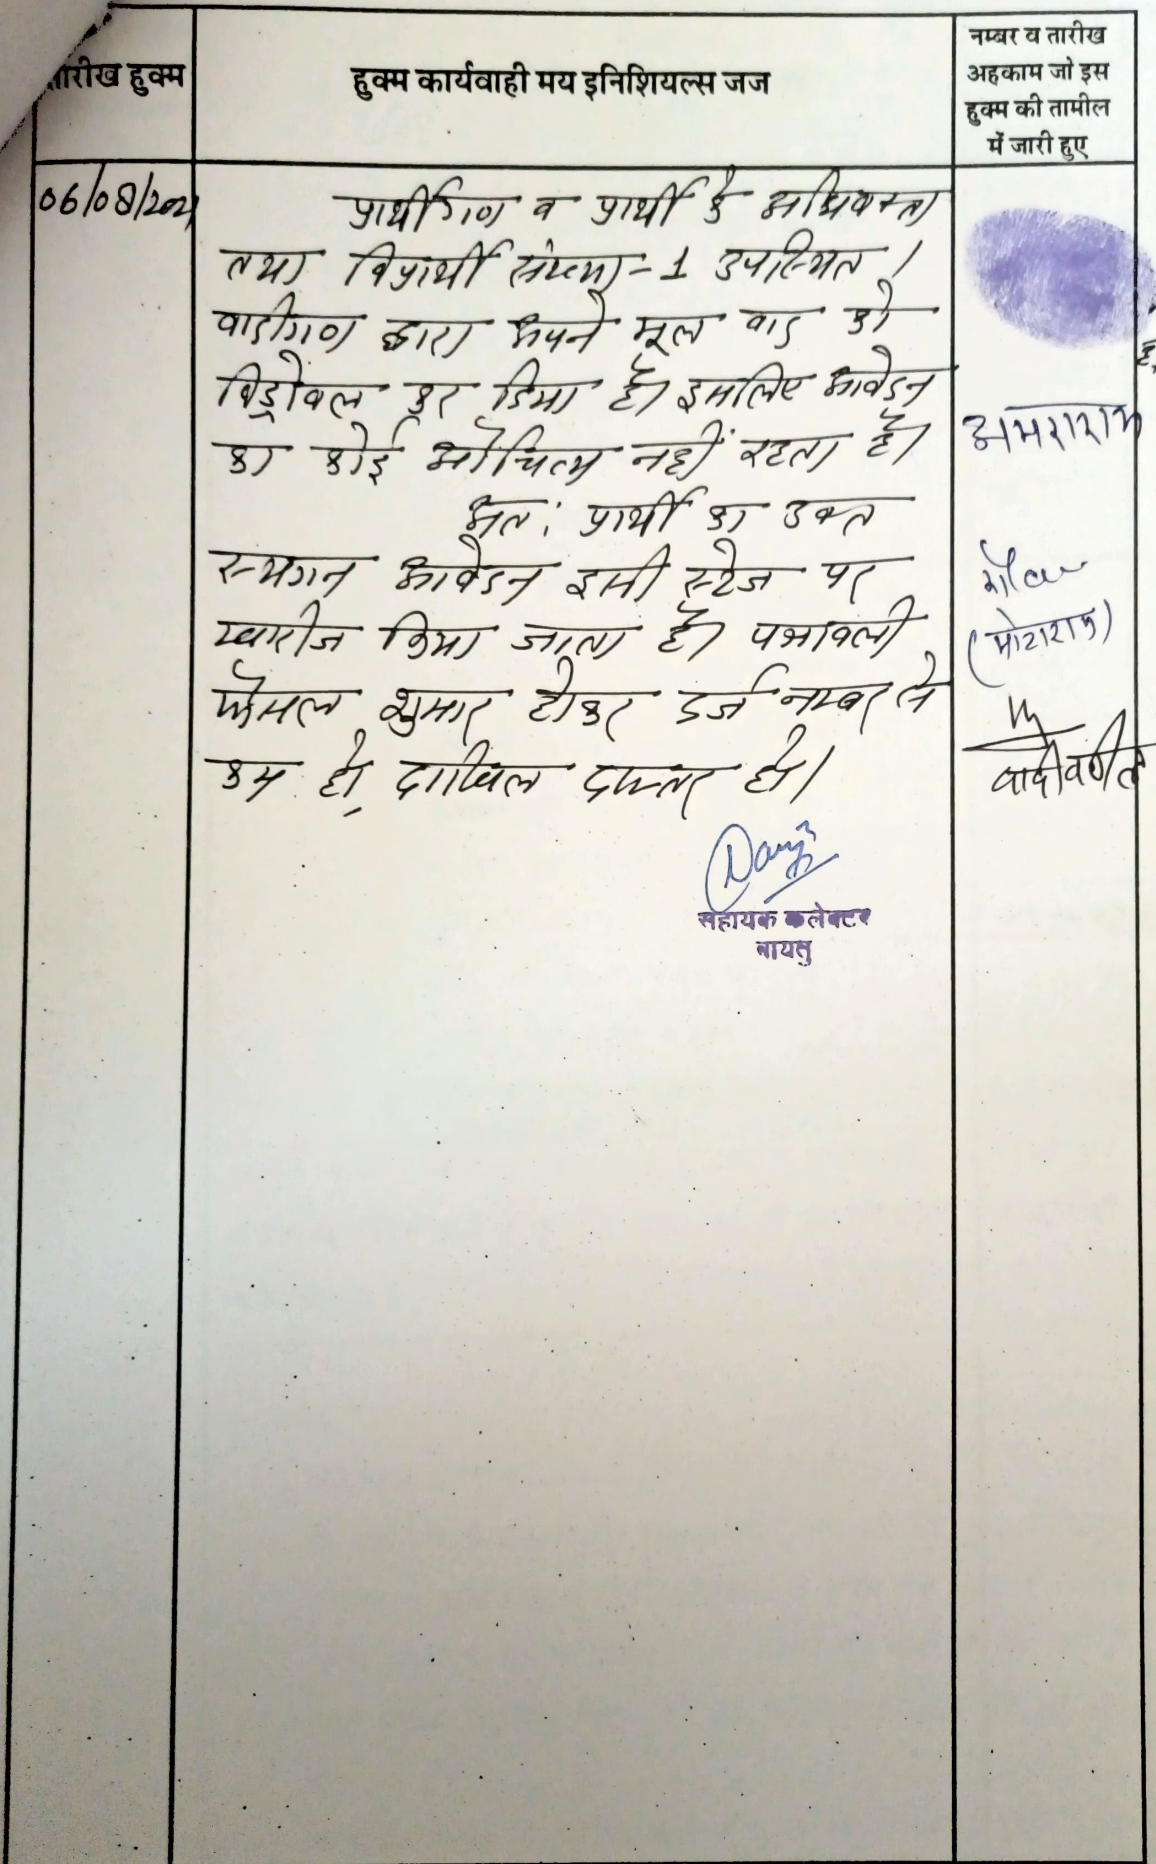 तारीख हुक्म
हुक्म कार्यवाही मय इनिशियल्स जज
नम्बर व तारीख
अहकाम जो इस
हुक्म की तामील
में जारी हुए
06/08/2021
प्रार्थीगण व प्रार्थी के अधिवक्ता
तथा विप्रार्थी संख्या-1 उपस्थित।
वादीगण द्वारा अपने मूल वाद को
विड्रोवल कर दिया है। इसलिए आवेदन
का कोई औचित्य नहीं रहता है।
अतः प्रार्थी का उक्त
स्थगन आवेदन इसी स्टेज पर
खारीज किया जाता है। पत्रावली
फैसल शुमार होकर दर्ज नम्बर से
कम हो, दाखिल दफ्तर हो।
सहायक कलेक्टर
बायतु
अमराराम
(मोटाराम)
वादी वकील